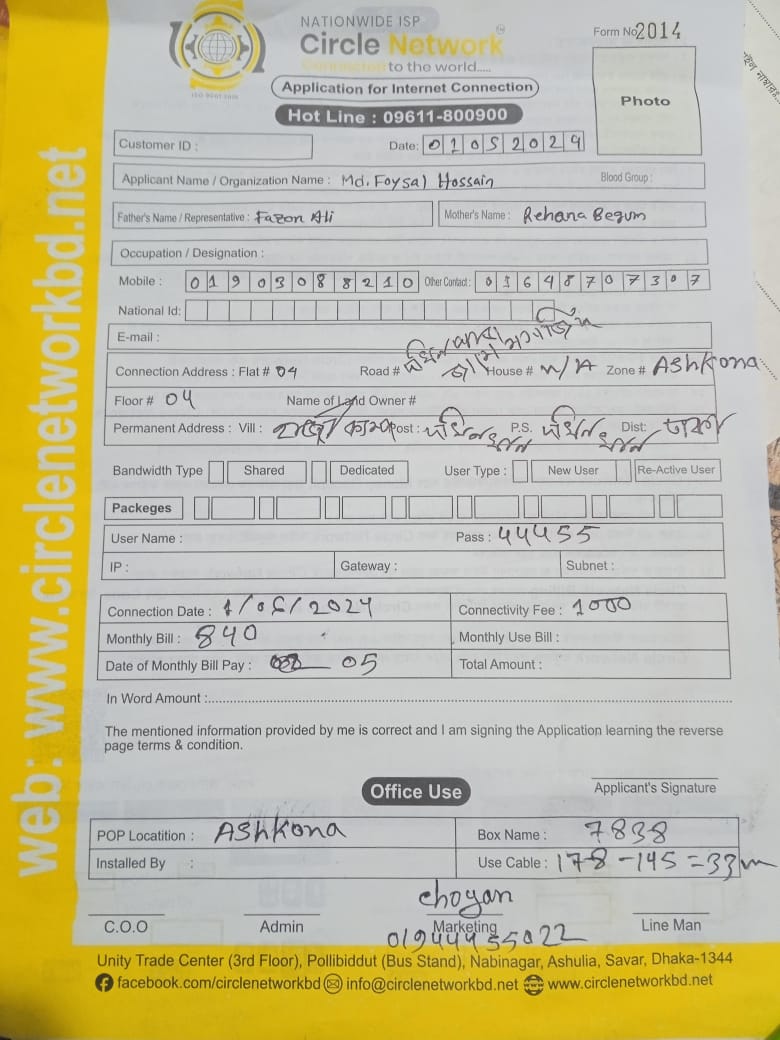 NATIONWIDE ISP
Circle Network
Connected to the world.....
Form No 2014
Application for Internet Connection
Hot Line : 09611-800900
Photo
Customer ID :
Date: 01052024
Applicant Name / Organization Name : Md. Foysal Hossain Blood Group :
Father's Name / Representative : Fazon Ali Mother's Name : Rehana Begum
Occupation / Designation :
Mobile : 01903088210 Other Contact : 01648707307
National Id:
E-mail :
Connection Address : Flat # 04 Road # House # N/A Zone # Ashkona
Floor # 04 Name of Land Owner #
Permanent Address : Vill : Post : P.S. Dist: ঢাকা
Bandwidth Type Shared Dedicated User Type : New User Re-Active User
Packeges
User Name : Pass : 44455
IP : Gateway : Subnet :
Connection Date : 1/05/2024 Connectivity Fee : 1000
Monthly Bill : 840 Monthly Use Bill :
Date of Monthly Bill Pay : 05 Total Amount :
In Word Amount :
The mentioned information provided by me is correct and I am signing the Application learning the reverse
page terms & condition.
Applicant's Signature
Office Use
POP Locatition : Ashkona Box Name : 7838
Installed By : Use Cable : 178 - 145 = 33m
choyan
C.O.O Admin Marketing Line Man
01944435022
Unity Trade Center (3rd Floor), Pollibiddut (Bus Stand), Nabinagar, Ashulia, Savar, Dhaka-1344
facebook.com/circlenetworkbd info@circlenetworkbd.net www.circlenetworkbd.net
web: www.circlenetworkbd.net